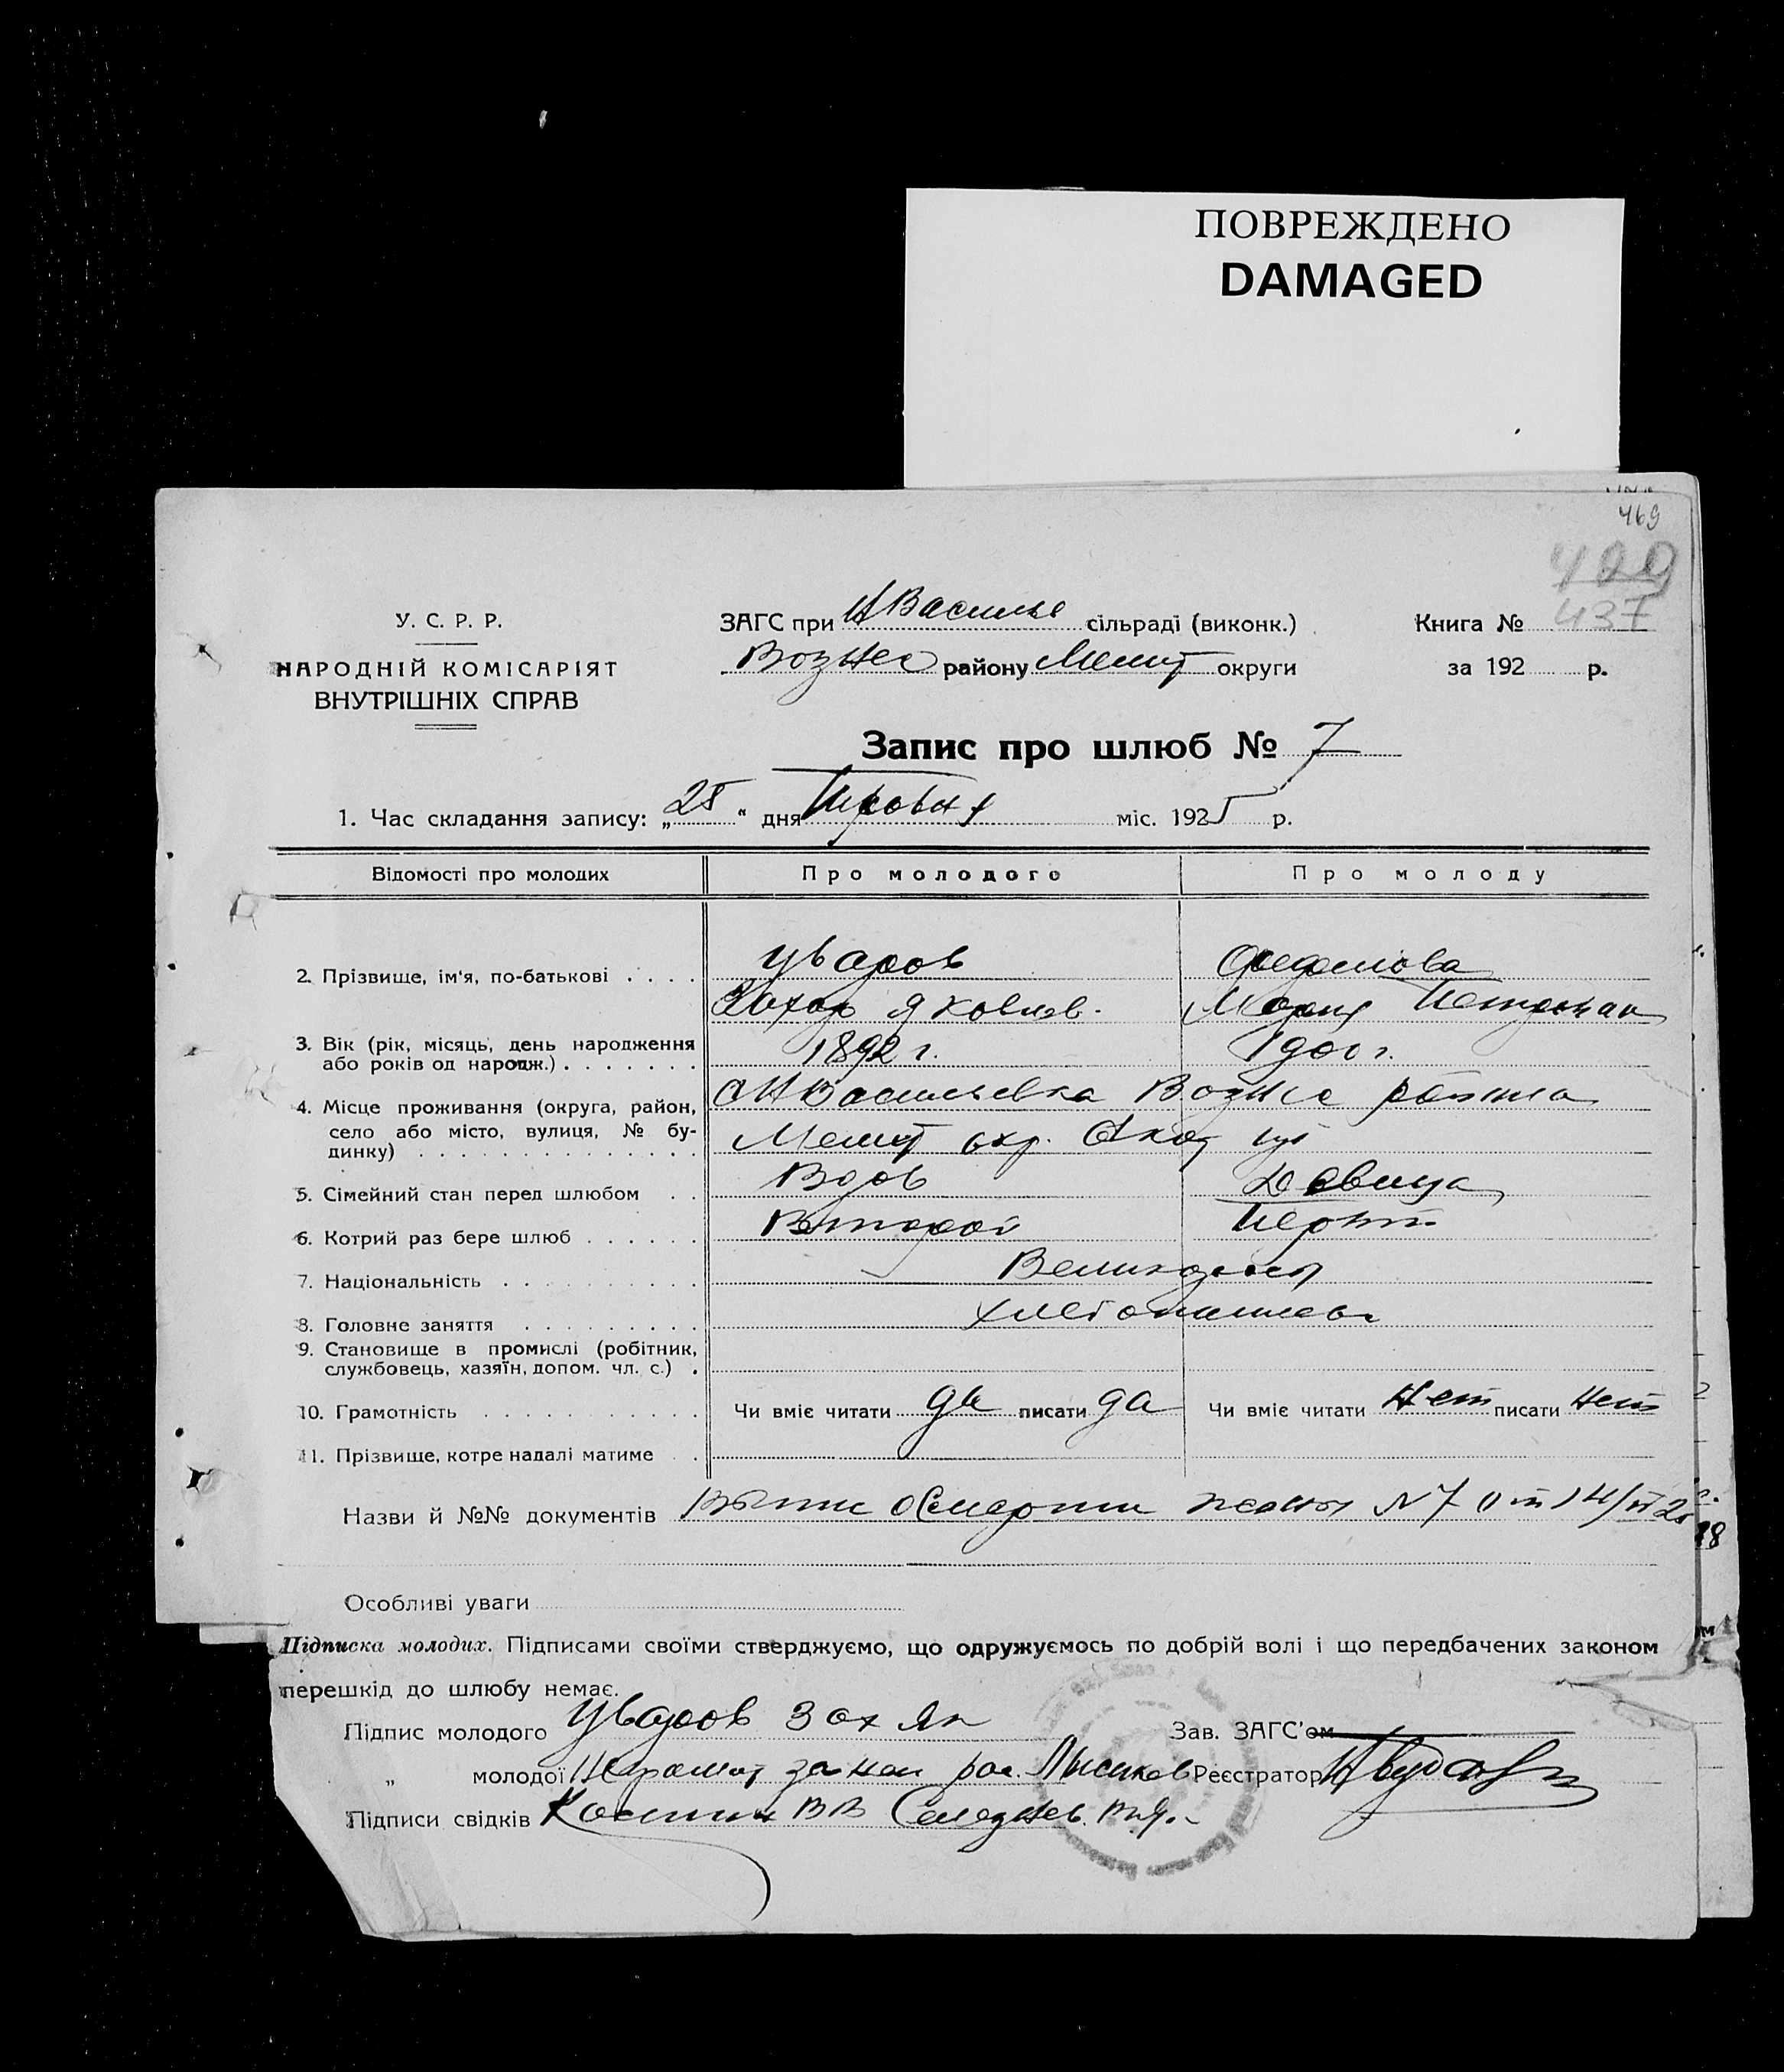 ПОВРЕЖДЕНО
DAMAGED
469
429
437
У. С. Р. Р.
НАРОДНІЙ КОМІСАРІЯТ
ВНУТРІШНІХ СПРАВ
ЗАГС при Н Василье сільраді (виконк.)
Вознес району Мелит округи
Книга №
за 192 р.
Запис про шлюб № 7
1. Час складання запису: „25“ дня міс. 1925 р.
Відомості про молодих Про молодого Про молоду
2. Прізвище, ім'я, по-батькові . . . . Уваров
Захар Яковлев. Мария
3. Вік (рік, місяць, день народження
або років од народж.) . . . . . . . 1892 г. 1900 г.
4. Місце проживання (округа, район,
село або місто, вулиця, № бу-
динку) . . . . . . . . . . . . . .
С Н Васильевка Вознес района
Мелит окр.
5. Сімейний стан перед шлюбом . . Вдов Девица
6. Котрий раз бере шлюб . . . . . . Второй Первый
7. Національність . . . . . . . . . . Великороссы
8. Головне заняття . . . . . . . . . Хлебопашев
9. Становище в промислі (робітник,
службовець, хазяїн, допом. чл. с.) .
10. Грамотність . . . . . . . . . . . Чи вміє читати да писати да Чи вміє читати Нет писати Нет
11. Прізвище, котре надалі матиме . .
Назви й №№ документів Выпис о Смерти жены N 7 от 14/VI 25
18
Особливі уваги
Підписка молодих. Підписами своїми стверджуємо, що одружуємось по добрій волі і що передбачених законом
перешкід до шлюбу немає.
Підпис молодого Уваров Зах Як
Зав. ЗАГС'ом
„ молодої Неграмот за нее рас. Лысиков Реєстратор
Підписи свідків Костин В В Селезнев.